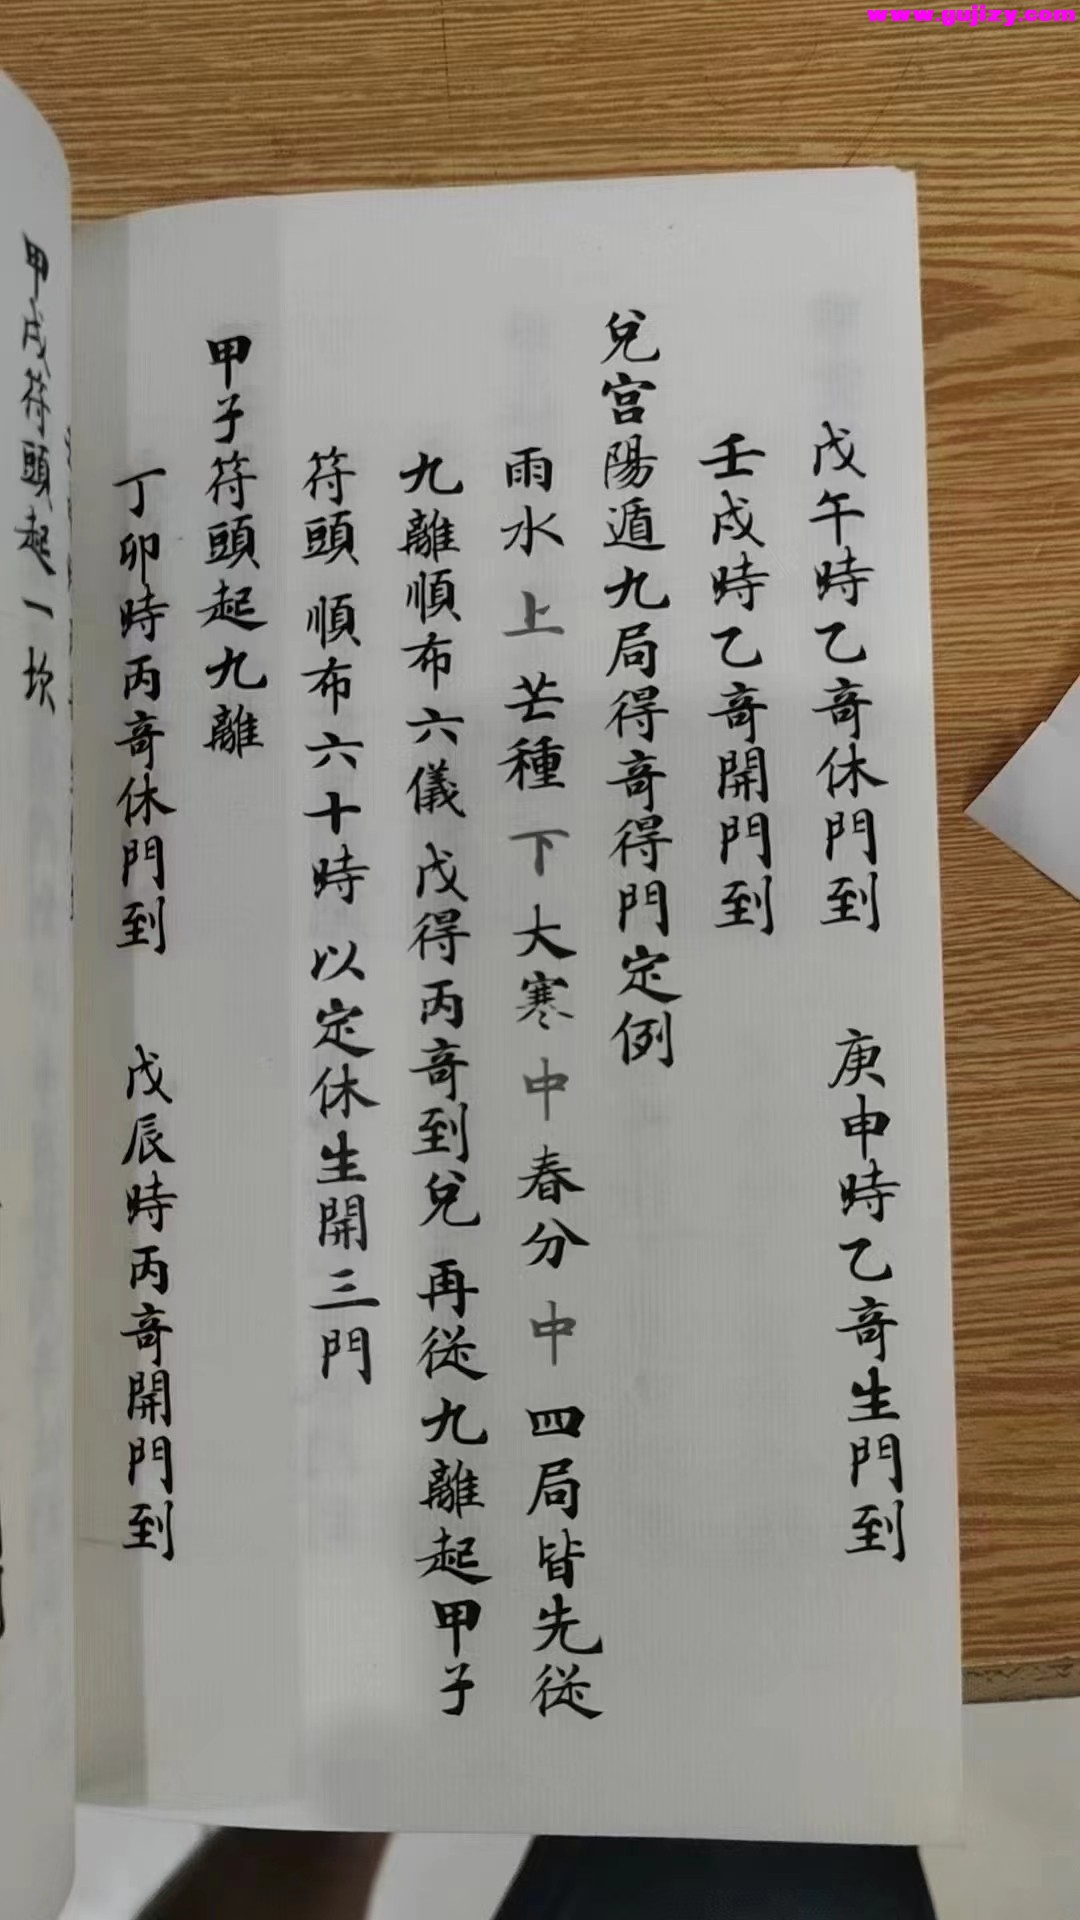 www.gujizy.com
戊午時乙奇休門到　庚申時乙奇生門到
壬戌時乙奇開門到
兌宫陽遁九局得奇得門定例
雨水上芒種下大寒中春分中四局皆先從
九離順布六儀戊得丙奇到兌再從九離起甲子
符頭順布六十時以定休生開三門
甲子符頭起九離
丁卯時丙奇休門到　戊辰時丙奇開門到
甲戌符頭起一坎